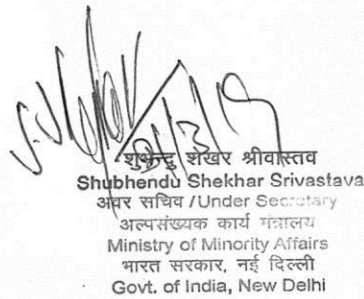 शुभेन्दु शेखर श्रीवास्तव
Shubhendu Shekhar Srivastava
अवर सचिव /Under Secretary
अल्पसंख्यक कार्य मंत्रालय
Ministry of Minority Affairs
भारत सरकार, नई दिल्ली
Govt. of India, New Delhi